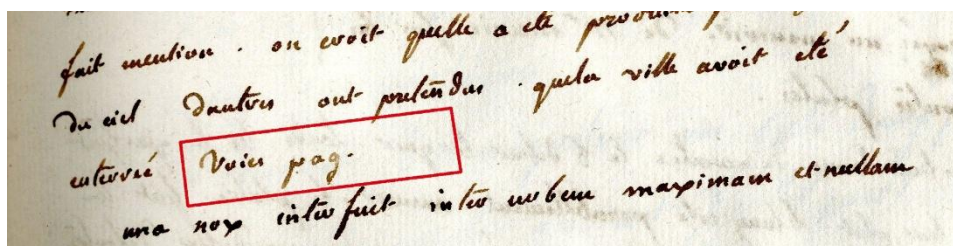 fait mention . on croit quelle a eté
du ciel Dautres ont pretendus . quela ville avoit eté
enterrée Voies pag.
una nox interfuit inter urbem maximam et nullam